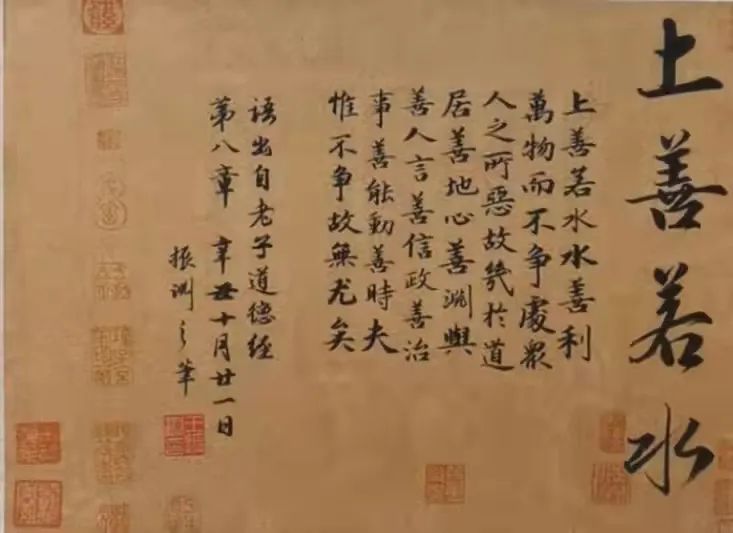 上善若水
上善若水水善利
萬物而不争處衆
人之所惡故幾於道
居善地心善淵與
善人言善信政善治
事善能動善時夫
惟不争故無尤矣
語出自老子道德经
第八章 辛丑十月廿一日
振渊之筆